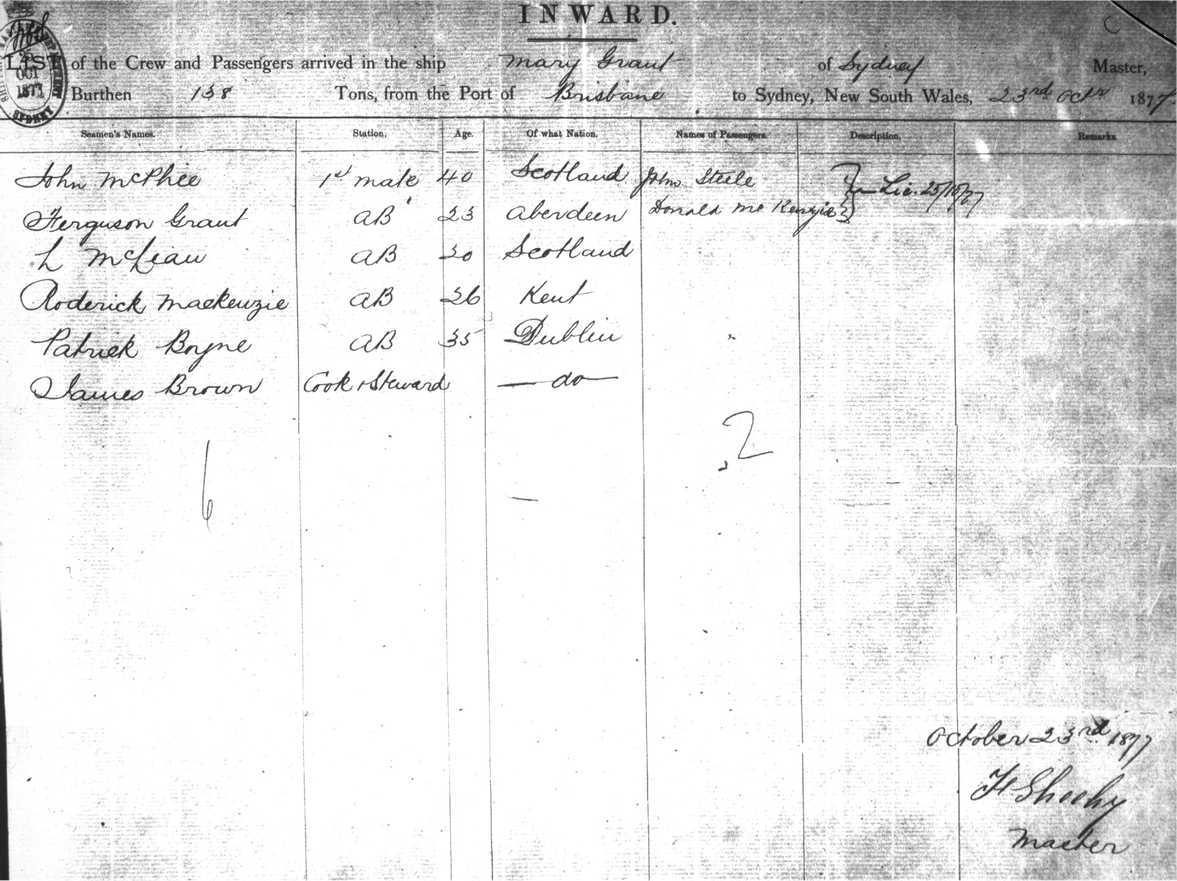 INWARD.
LIST of the Crew and Passengers arrived in the ship Mary Grant of Sydney Master,
Burthen 138 Tons, from the Port of Brisbane to Sydney, New South Wales, 23rd Octr 1877
OCT
1877
SYDNEY
Seamen's Names. Station. Age. Of what Nation. Names of Passengers. Description. Remarks
John McPhee 1st mate 40 Scotland John Steele
Ferguson Grant AB 23 Aberdeen Donald McKenzie
L McLean AB 30 Scotland
Roderick Mackenzie AB 26 Kent
Patrick Boyne AB 35 Dublin
James Brown Cook & Steward — do —
6 2
October 23rd 1877
Sheehy
Master